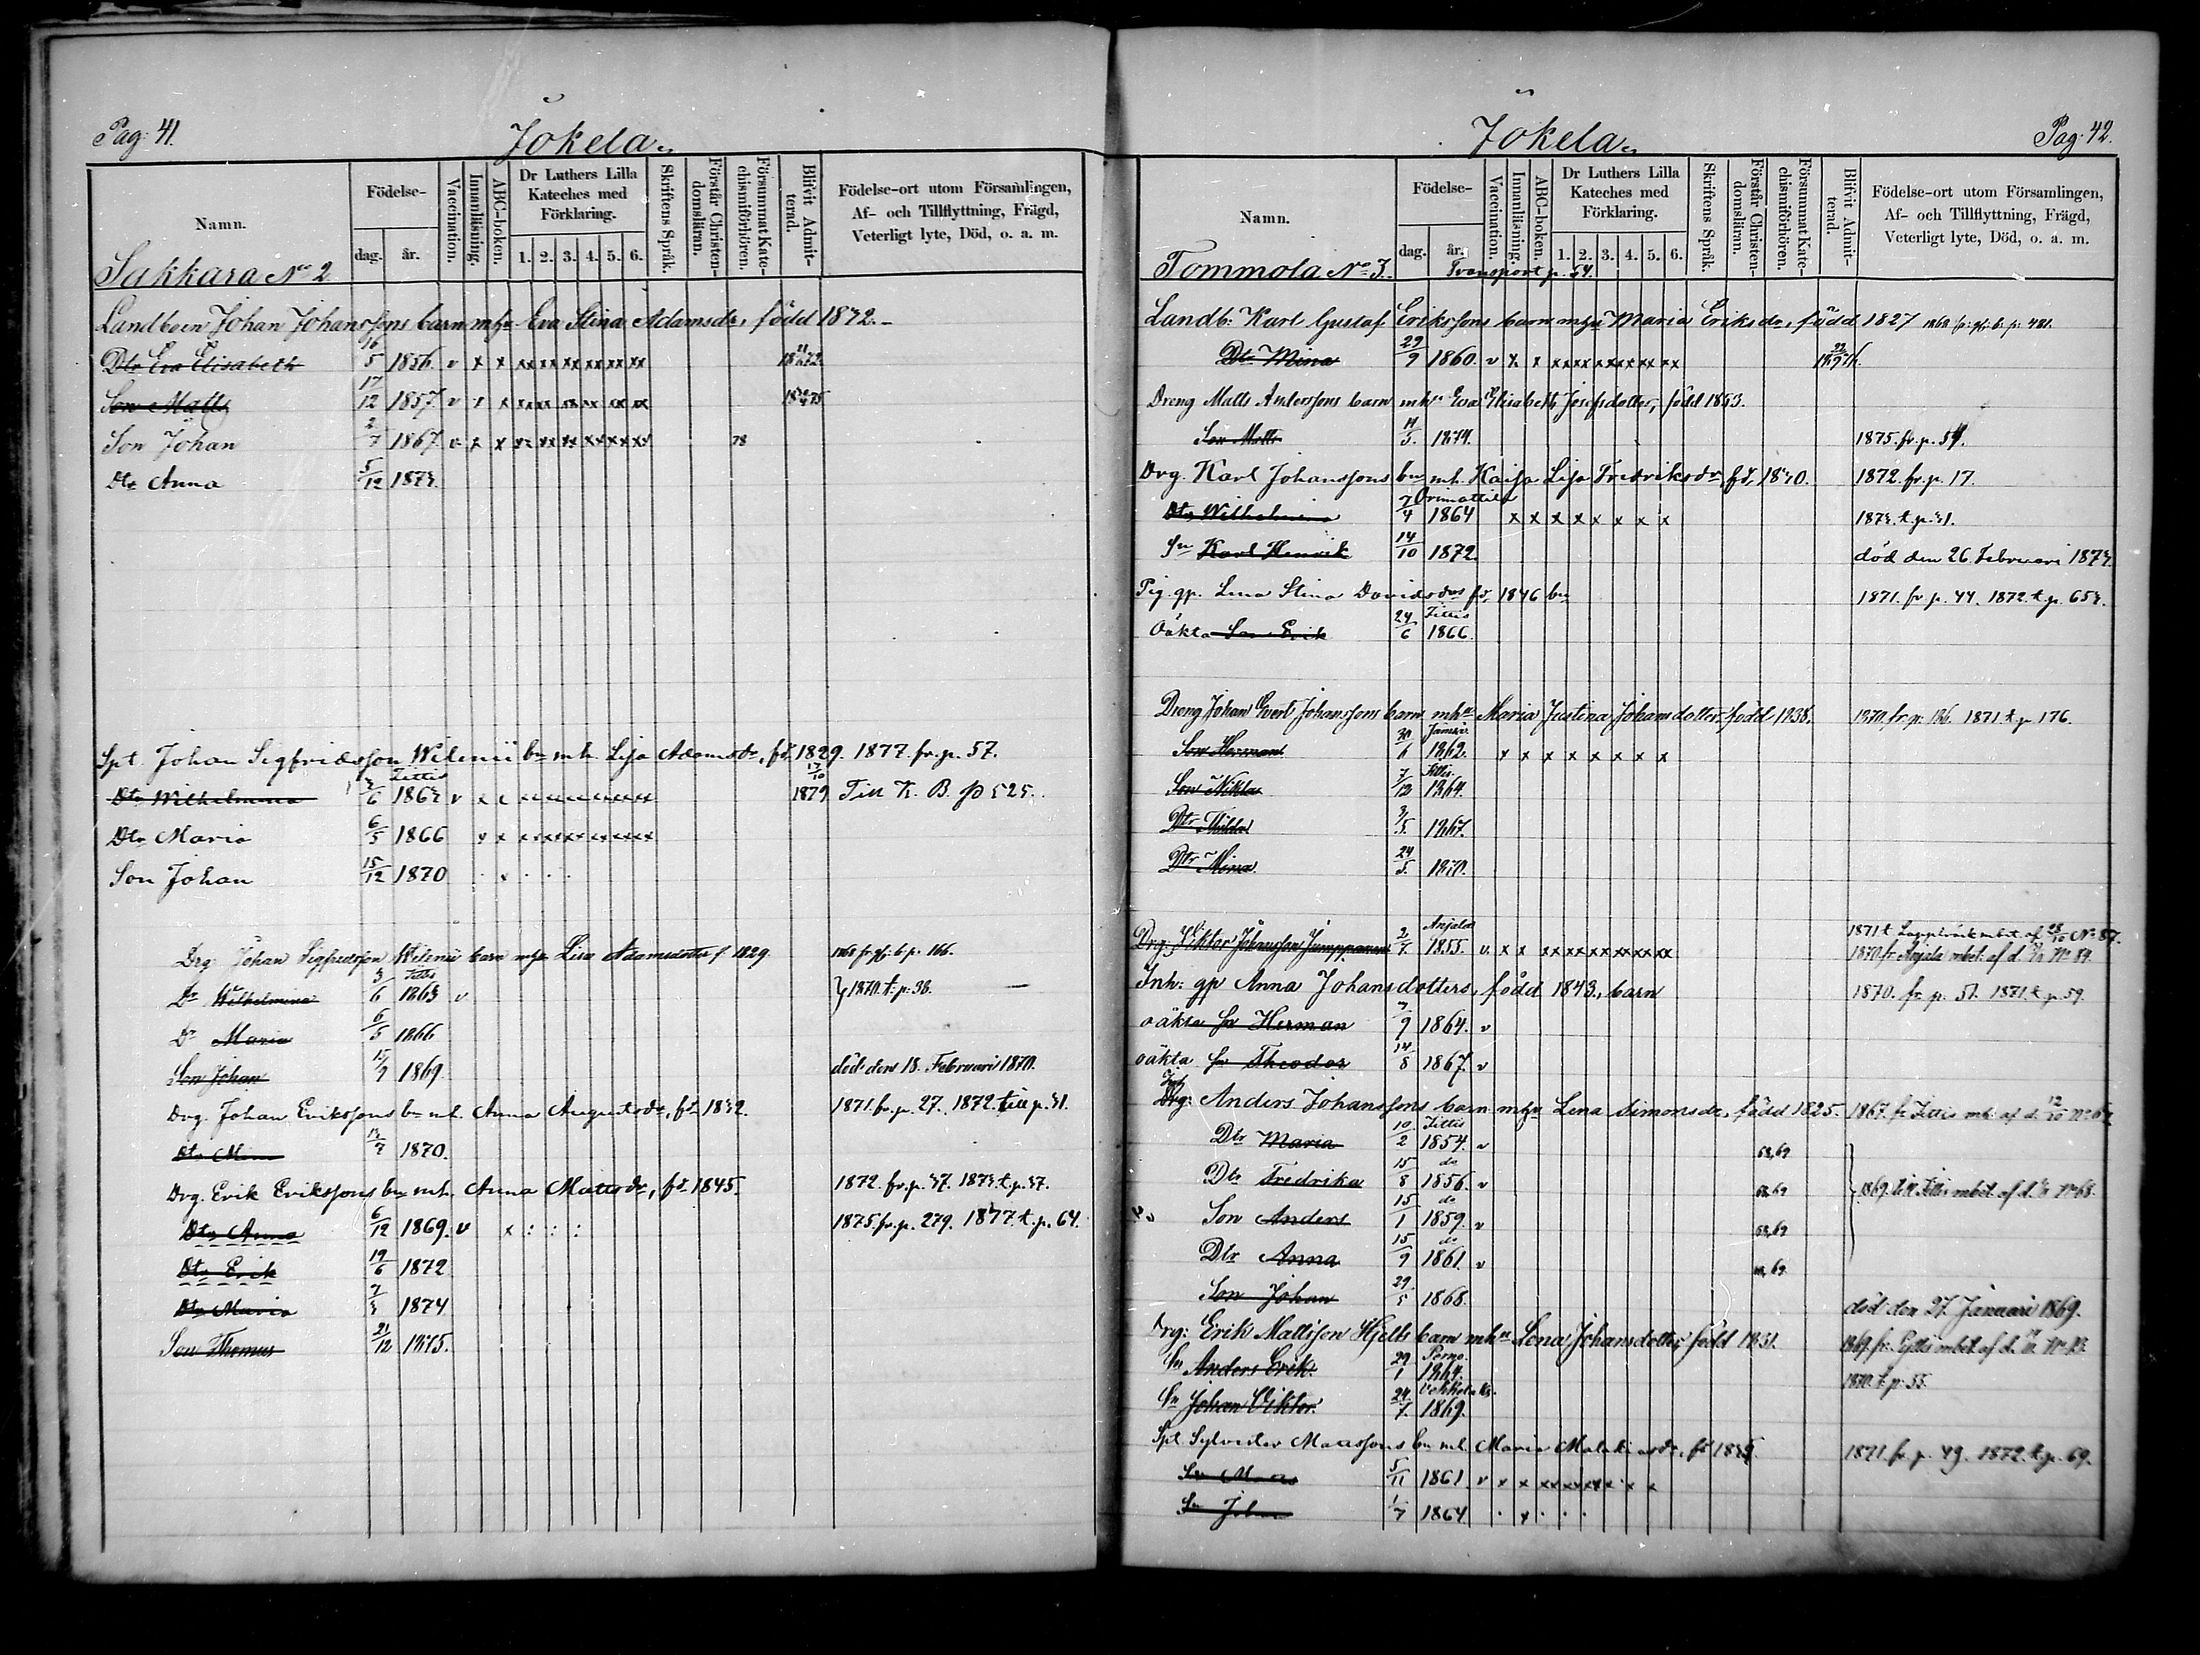 Pag: 41.
Jokela
Namn.
Födelse-
dag. år.
Vaccination.
Innanläsning.
ABC-boken.
Dr Luthers Lilla Kateches med Förklaring.
1. 2. 3. 4. 5. 6.
Skriftens Språk.
Förstår Christendomsläran.
Försummat Katechismiförhören.
Blifvit Admitterad.
Födelse-ort utom Församlingen,
Af- och Tillflyttning, Frägd,
Veterligt lyte, Död, o. a. m.
Sakkara No 2
Landboen Johan Johanssons barn mhu Eva Stina Adamsdr, född
Dtr Eva Elisabeth 16/5 1856. v x x xx xx xx xx xx xx
Son Matts 17/12 1857. v x x xx xx xx xx xx xx
Son Johan 2/7 1867. v x x xx xx xx xx xx xx 78
Dtr Anna 5/12 1873.
Spt. Johan Sigfridsson Wilenii bn mh. Lisa Adamsdr, fd. 1829. 1877. fr. p. 57.
Dtr Wilhelmina 3/6 1863 v x x 17/10 1879 Till K. B. p 525.
Dtr Maria 6/5 1866 x x xx xx xx xx xx xx
Son Johan 15/12 1870
Drg. Johan Sigfridsson Wilenii barn mhu Lisa Adamsdotter f. 1829. 1868 fr. gl. b. p. 166.
Dr Wilhelmina 3/6 1863 v 1870. t. p. 38.
Dr Maria 6/5 1866
Son Johan 15/9 1869. död den 18. Februari 1870.
Drg. Johan Erikssons bn mh. Anna Augustsdr, fd. 1871. fr. p. 27. 1872. till p. 31.
Dtr 13/7 1870.
Drg. Erik Erikssons bn mh. Anna Mattsdr, fd. 1845. 1872. fr. p. 37. 1873. t. p. 37.
Dtr Anna 6/12 1869. v x : : : 1875. fr. p. 279. 1877. t. p. 64.
Dtr Erik 19/6 1872
Dtr Maria 7/3 1874
Son Thomas 21/12 1875.
Jokela
Pag: 42.
Namn.
Födelse-
dag. år.
Vaccination.
Innanläsning.
ABC-boken.
Dr Luthers Lilla Kateches med Förklaring.
1. 2. 3. 4. 5. 6.
Skriftens Språk.
Förstår Christendomsläran.
Försummat Katechismiförhören.
Blifvit Admitterad.
Födelse-ort utom Församlingen,
Af- och Tillflyttning, Frägd,
Veterligt lyte, Död, o. a. m.
Tommola No 3. Transport p. 54.
Landb: Karl Gustaf Erikssons barn mhu Maria Eriksdr, född 1827 1868 fr. gl. b. p. 481.
Dtr Mina 29/9 1860. v x x xx xx xx xx xx xx
Dreng Matts Anderssons barn mhu Eva Elisabeth Josefsdotter, född 1853.
Son Matts 14/5. 1874. 1875. fr. p. 54.
Drg. Karl Johanssons bn mh. Kaisa Lisa Fredriksdr, fd. 1840. 1872. fr. p. 17.
Orimattila
Dtr Wilhelmina 7/4 1864 x x x x x x x x 1873. t. p. 31.
Sn Karl Henrik 14/10 1872. död den 26. Februari 1873.
Pig. gp. Lena Stina Davidsdrs fd. 1846 bn 1871. fr. p. 44. 1872. t. p. 653.
Oäkta Son Erik 24/6 Jittis 1866.
Dreng Johan Evert Johanssons barn mhu Maria Justina Johansdotter, född 1838. 1870. fr. p. 136. 1871. t. p. 176.
Son Herman 30/6 1862. x x x x x x x x
Son Nikla 7/12 Jittis 1864.
Dtr Hilda 3/5. 1867.
Dtr Mina 24/5. 1870.
Drg. Viktor Johansson Jumppanen 2/7. Anjala 1855. v. x x xx xx xx xx xx xx 1871 t. Lappträsk mbet. af 28/10 No 87.
1870. fr. Anjala mbet. af d. No 89.
Inh: gp Anna Johansdotters, född 1843, barn 1870. fr. p. 51. 1871. t. p. 59.
oäkta Sn Herman 7/9 1864. v
oäkta Sn Theodor 14/8 1867. v
Drg: Anders Johanssons barn mhu Lena Simonsdr, född 1825. 1867. fr. Jittis mb. af d. 12/10
Dtr Maria 10/2 Jittis 1854. v 68,69
Dtr Fredrika 15/8 do 1856. v 68,69 1869. till Jittis mbet. af d. No 68.
Son Anders 15/1 do 1859. v 68,69
Dtr Anna 15/9 do 1861. v 68,69
Son Johan 29/5 1868. död den 27. Januari 1869.
Drg: Erik Mattsson Hjelts barn mhu Lena Johansdotter född 1831. 1869. fr.
Sn Anders Erik. 29/1 Perno 1864. 1870. t. p. 55.
Sn Johan Viktor. 24/7. 1869.
Spt Sylvester Maassons bn mh. Maria fd 1871. fr. p. 49. 1872. t. p. 69.
Sn 5/11 1861. v x x xx xx xx x x
Sn Johan 1/7 1864